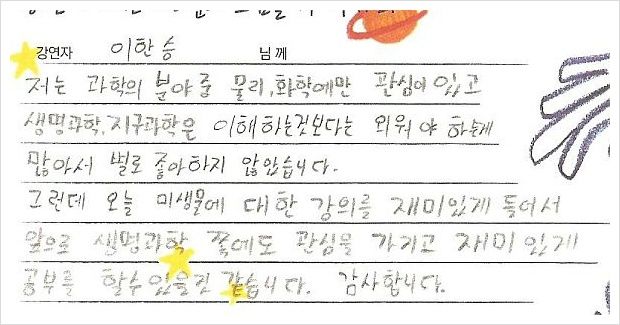 강연자 이한승 님께
저는 과학의 분야중 물리,화학에만 관심이 있고
생명과학,지구과학은 이해하는것보다는 외워야 하는게
많아서 별로 좋아하지 않았습니다.
그런데 오늘 미생물에 대한 강의를 재미있게 들어서
앞으로 생명과학 쪽에도 관심을 가지고 재미있게
공부를 할수있을것 같습니다. 감사합니다.